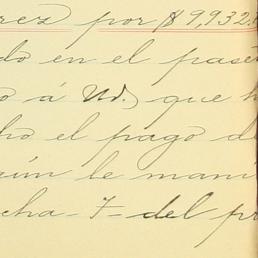 rez por $9,932.
do en el pasé
o á Ud. que h
ho el pago de
gún le mani
cha - 7 - del pr